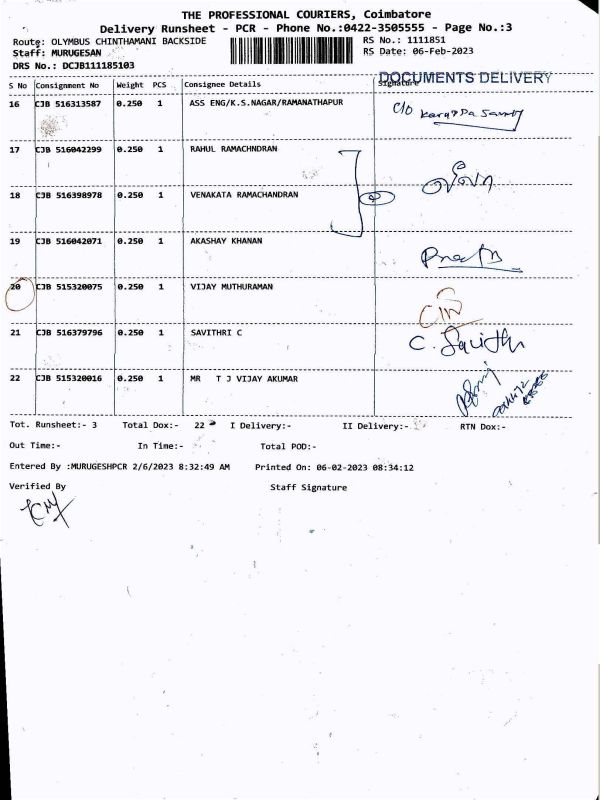 THE PROFESSIONAL COURIERS, Coimbatore
Delivery Runsheet - PCR - Phone No.:0422-3505555 - Page No.:3
Route: OLYMBUS CHINTHAMANI BACKSIDE
RS No.: 1111851
Staff: MURUGESAN
RS Date: 06-Feb-2023
DRS No.: DCJB111185103
DOCUMENTS DELIVERY
S No Consignment No Weight PCS Consignee Details Signature
16 CJB 516313587 0.250 1 ASS ENG/K.S.NAGAR/RAMANATHAPUR C/O
17 CJB 516042299 0.250 1 RAHUL RAMACHNDRAN
18 CJB 516398978 0.250 1 VENAKATA RAMACHANDRAN
19 CJB 516042071 0.250 1 AKASHAY KHANAN
20 CJB 515320075 0.250 1 VIJAY MUTHURAMAN
21 CJB 516379796 0.250 1 SAVITHRI C C. Savithri
22 CJB 515320016 0.250 1 MR T J VIJAY AKUMAR
Tot. Runsheet:- 3 Total Dox:- 22 I Delivery:- II Delivery:- RTN Dox:-
Out Time:- In Time:- Total POD:-
Entered By :MURUGESHPCR 2/6/2023 8:32:49 AM Printed On: 06-02-2023 08:34:12
Verified By Staff Signature